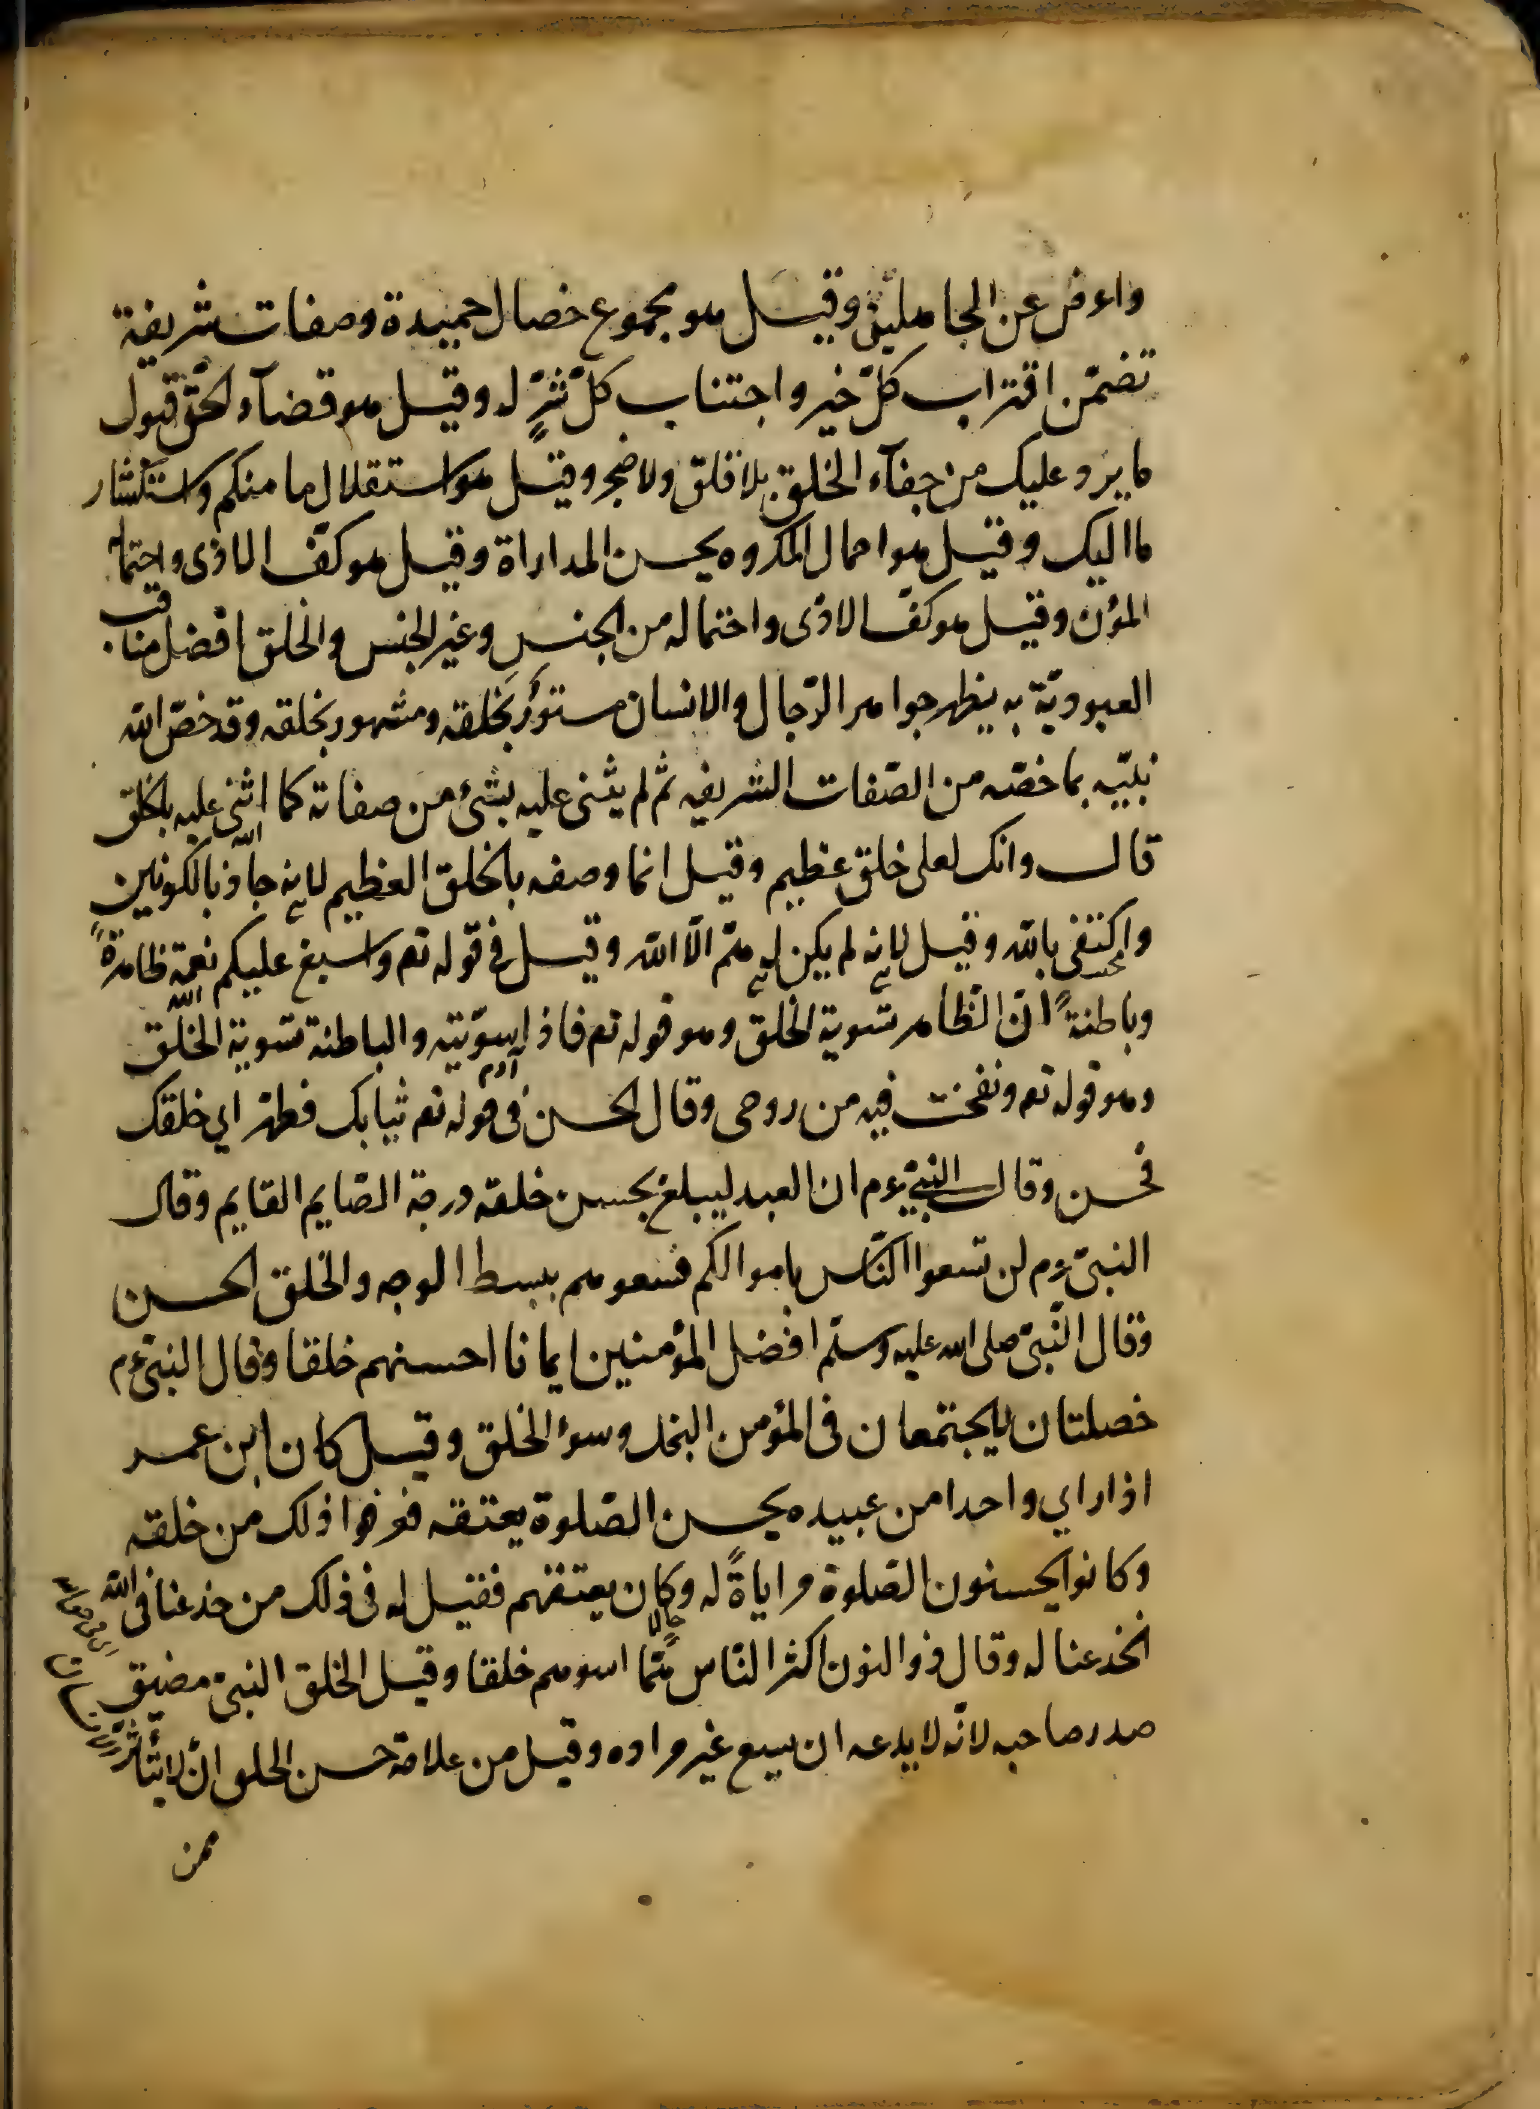 واعرض عن الجاهلين وقيل هو مجموع خصال حميدة وصفات شريفة
تضمّن اقتراب كلّ خير واجتناب كلّ شرٍّ له وقيل هو قضآء لحقّ قبول
ما يرد عليك من جفآء الخلق بلا قلق ولا ضجر وقيل هو استقلال ما منكم واستكثار
ما اليك وقيل هو احمال المكروه بحسن المداراة وقيل هو كفّ الاذى واحتمال
المؤن وقيل هو كفّ الاذى واحتماله من الجنس وغير الجنس والخلق افضل مناقب
العبوديّة به يظهر جواهر الرّجال والانسان مستور بخَلقه ومشهور بخلقه وقد خصّ الله
نبيّه بما خصّه من الصّفات الشريفه ثم لم يثنى عليه بشئ من صفاته كما اثنى عليه بالخلق
قال الله وانك لعلى خلق عظيم وقيل انما وصفه بالخلق العظيم لانه جاد بالكونين
واكتفى بالله وقيل لانه لم يكن له همّ الّا الله وقيل فى قوله تع واسبغ عليكم نعمه ظاهرةً
وباطنةً انّ الظّاهر تسوية الخلق وهو قوله تع فاذا سوّيته والباطنة تسوية الخلق
وهو قوله تع ونفخت فيه من روحى وقال الحسن فى قوله تع ثيابك فطهّر اي خلقك
فحسن وقال النبيّ ءم ان العبد ليبلغ بحسن خلقه درجة الصّايم القايم وقال
النبىّ ءم لن تسعوا النّاس باموالكم فسعوهم ببسط الوجه والخلق الحسن
وقال النّبىّ صلى الله عليه وسلّم افضل المؤمنين ايمانا احسنهم خلقا وقال النبىّ ءم
خصلتان لا يجتمعان فى المؤمن البخل وسوء الخلق وقيل كان ابن عمر
اذا راي واحدا من عبيده يحسن الصّلوة يعتقه فعرفوا ذلك من خلقه
وكانوا يحسنون الصّلوة مراياةً له وكان يعتقهم فقيل له فى ذلك من خدعنا فى الله
انخدعنا له وقال ذو النون اكثر النّاس همّا اسوهم خلقا وقيل الخلق مضيق
صدر صاحبه لانّه لا يدعه ان يسع غير مراده وقيل من علامة حسن الخلق ان لا يتأثّر
ممن